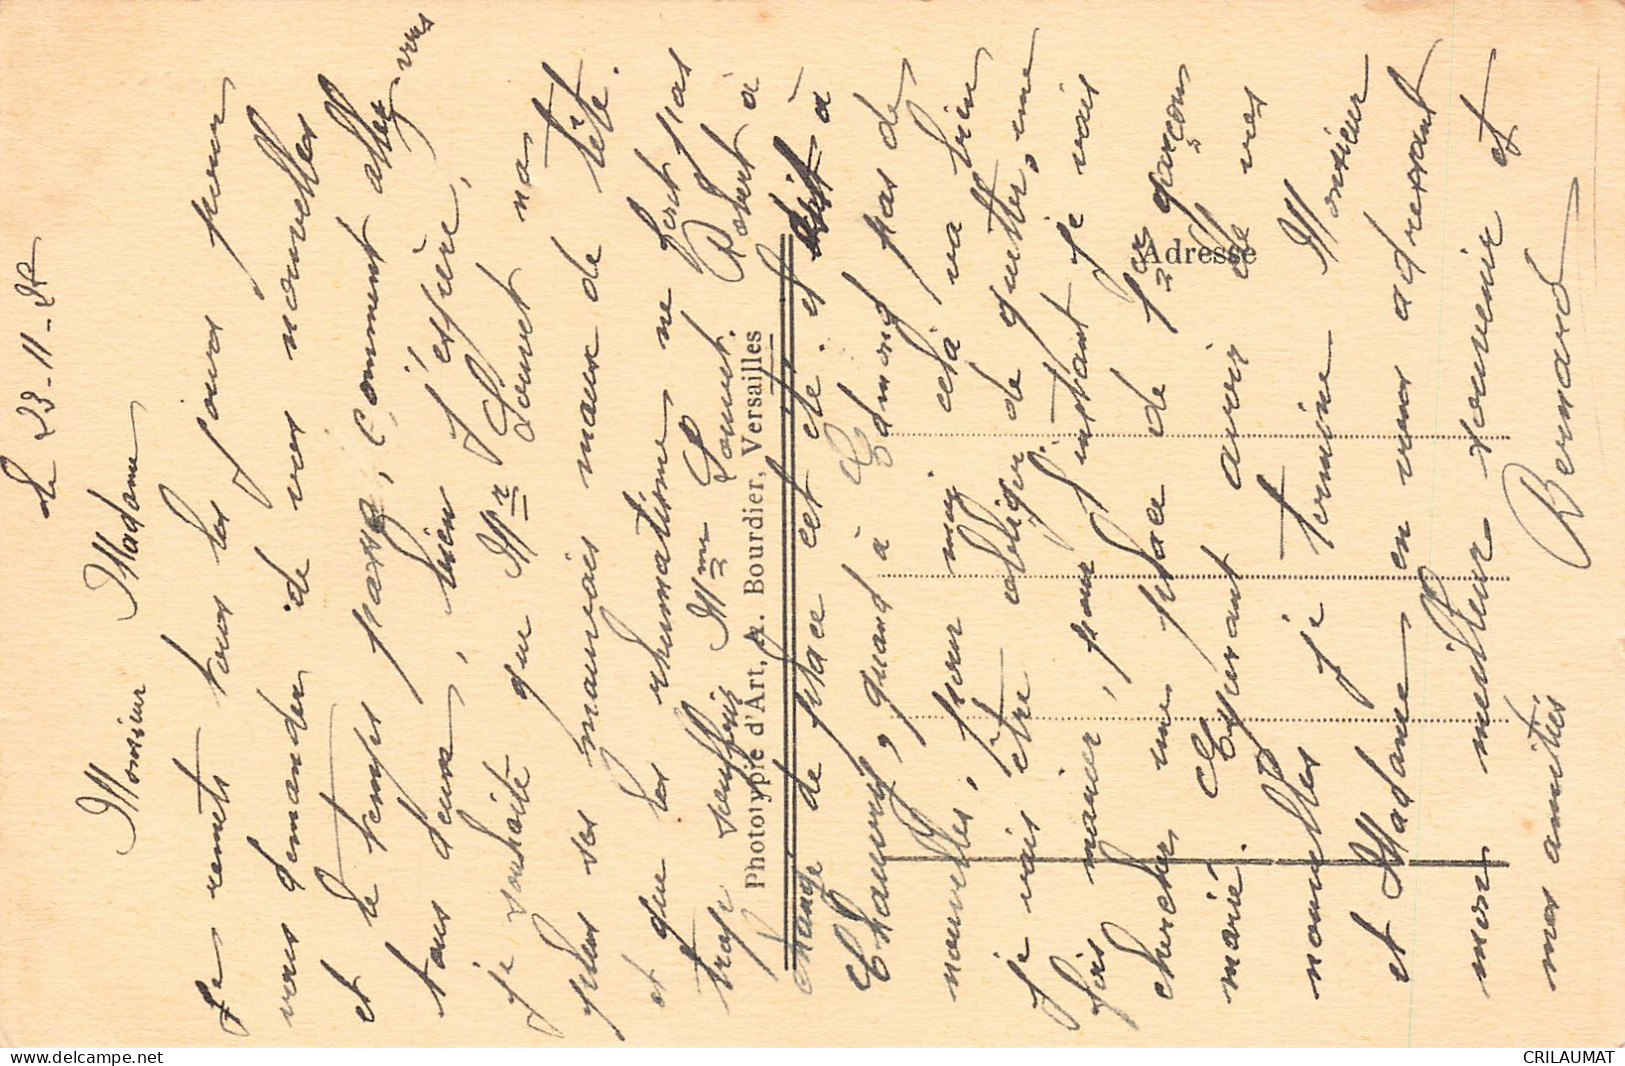 Le 23-11-25
Monsieur Madame
Je remets tous les jours pour
vous demander de vos nouvelles
et le temps passe, Comment allez-vous
tous deux, bien j'espère,
je souhaite que Mr Louvet n'a
plus ses mauvais maux de tête.
et que les rhumatisme ne font pas
trop souffrir Mme Louvet. Robert à
changé de place cet été. et à
Chauvry, quand à Edmond pas de
nouvelles, pour moi cela va bien
je vais être obliger de quitter, une
fois marier, pour l'instant je vais
chercher une place de 1er garçon
marié. Espérant avoir de vos
nouvelles je termine Monsieur
et Madame en vous adressant
mon meilleur souvenir et
mes amitiés Bernard
Phototypie d'Art, A. Bourdier, Versailles
Adresse
delcampe.net
CRILAUMAT